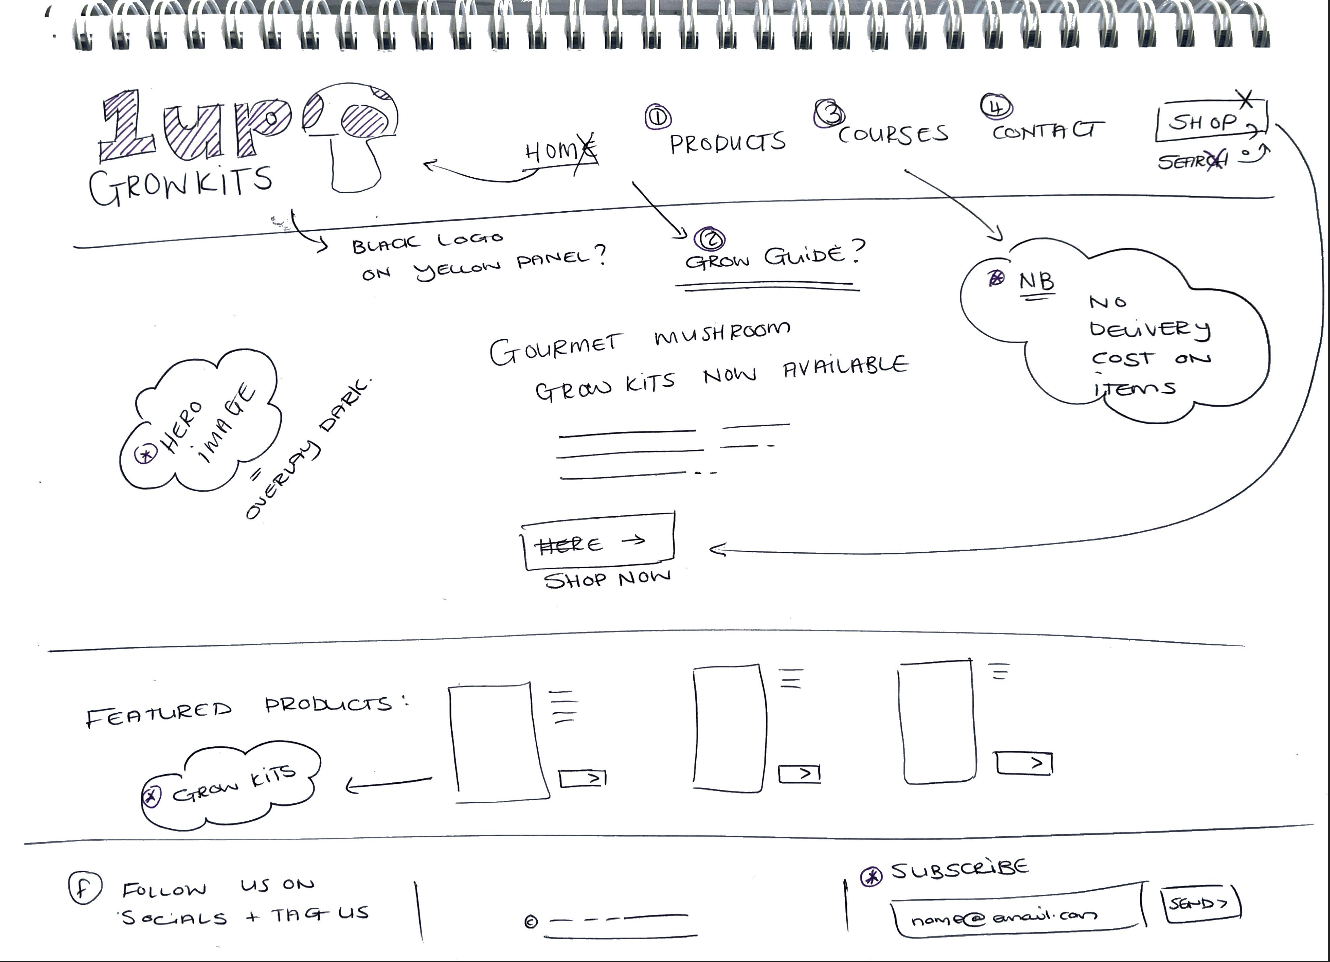 1up
GROWKITS
HOME
① PRODUCTS
③ COURSES
④ CONTACT
SHOP
SEARCH
BLACK LOGO
ON YELLOW PANEL?
②
GROW GUIDE?
* NB
NO
DELIVERY
COST ON
ITEMS
GOURMET MUSHROOM
GROW KITS NOW AVAILABLE
* HERO
IMAGE
=
OVERLAY DARK.
HERE →
SHOP NOW
FEATURED PRODUCTS:
* GROW KITS
>
>
>
f FOLLOW US ON
SOCIALS + TAG US
©
* SUBSCRIBE
name@email.com
SEND >